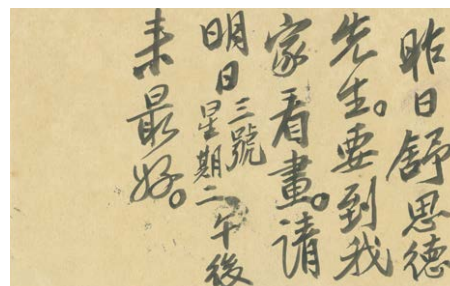 昨日舒思德
先生。要到我
家看畫。請
明日三號星期二午後
來最好。